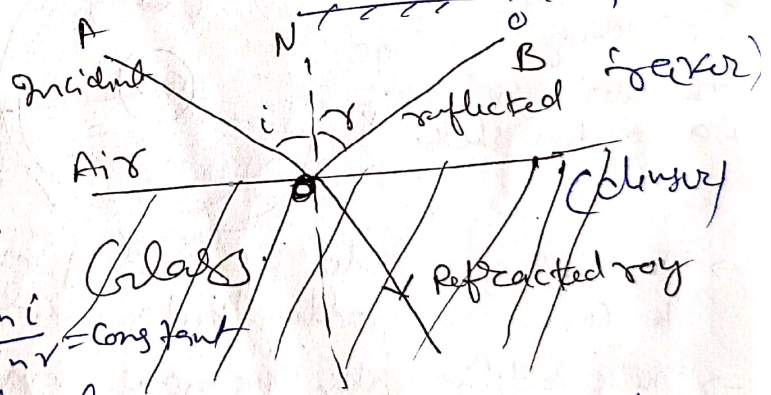 A
N
B
Incident
i
r
reflected
Air
(denser)
Glass
Refracted ray
= Constant